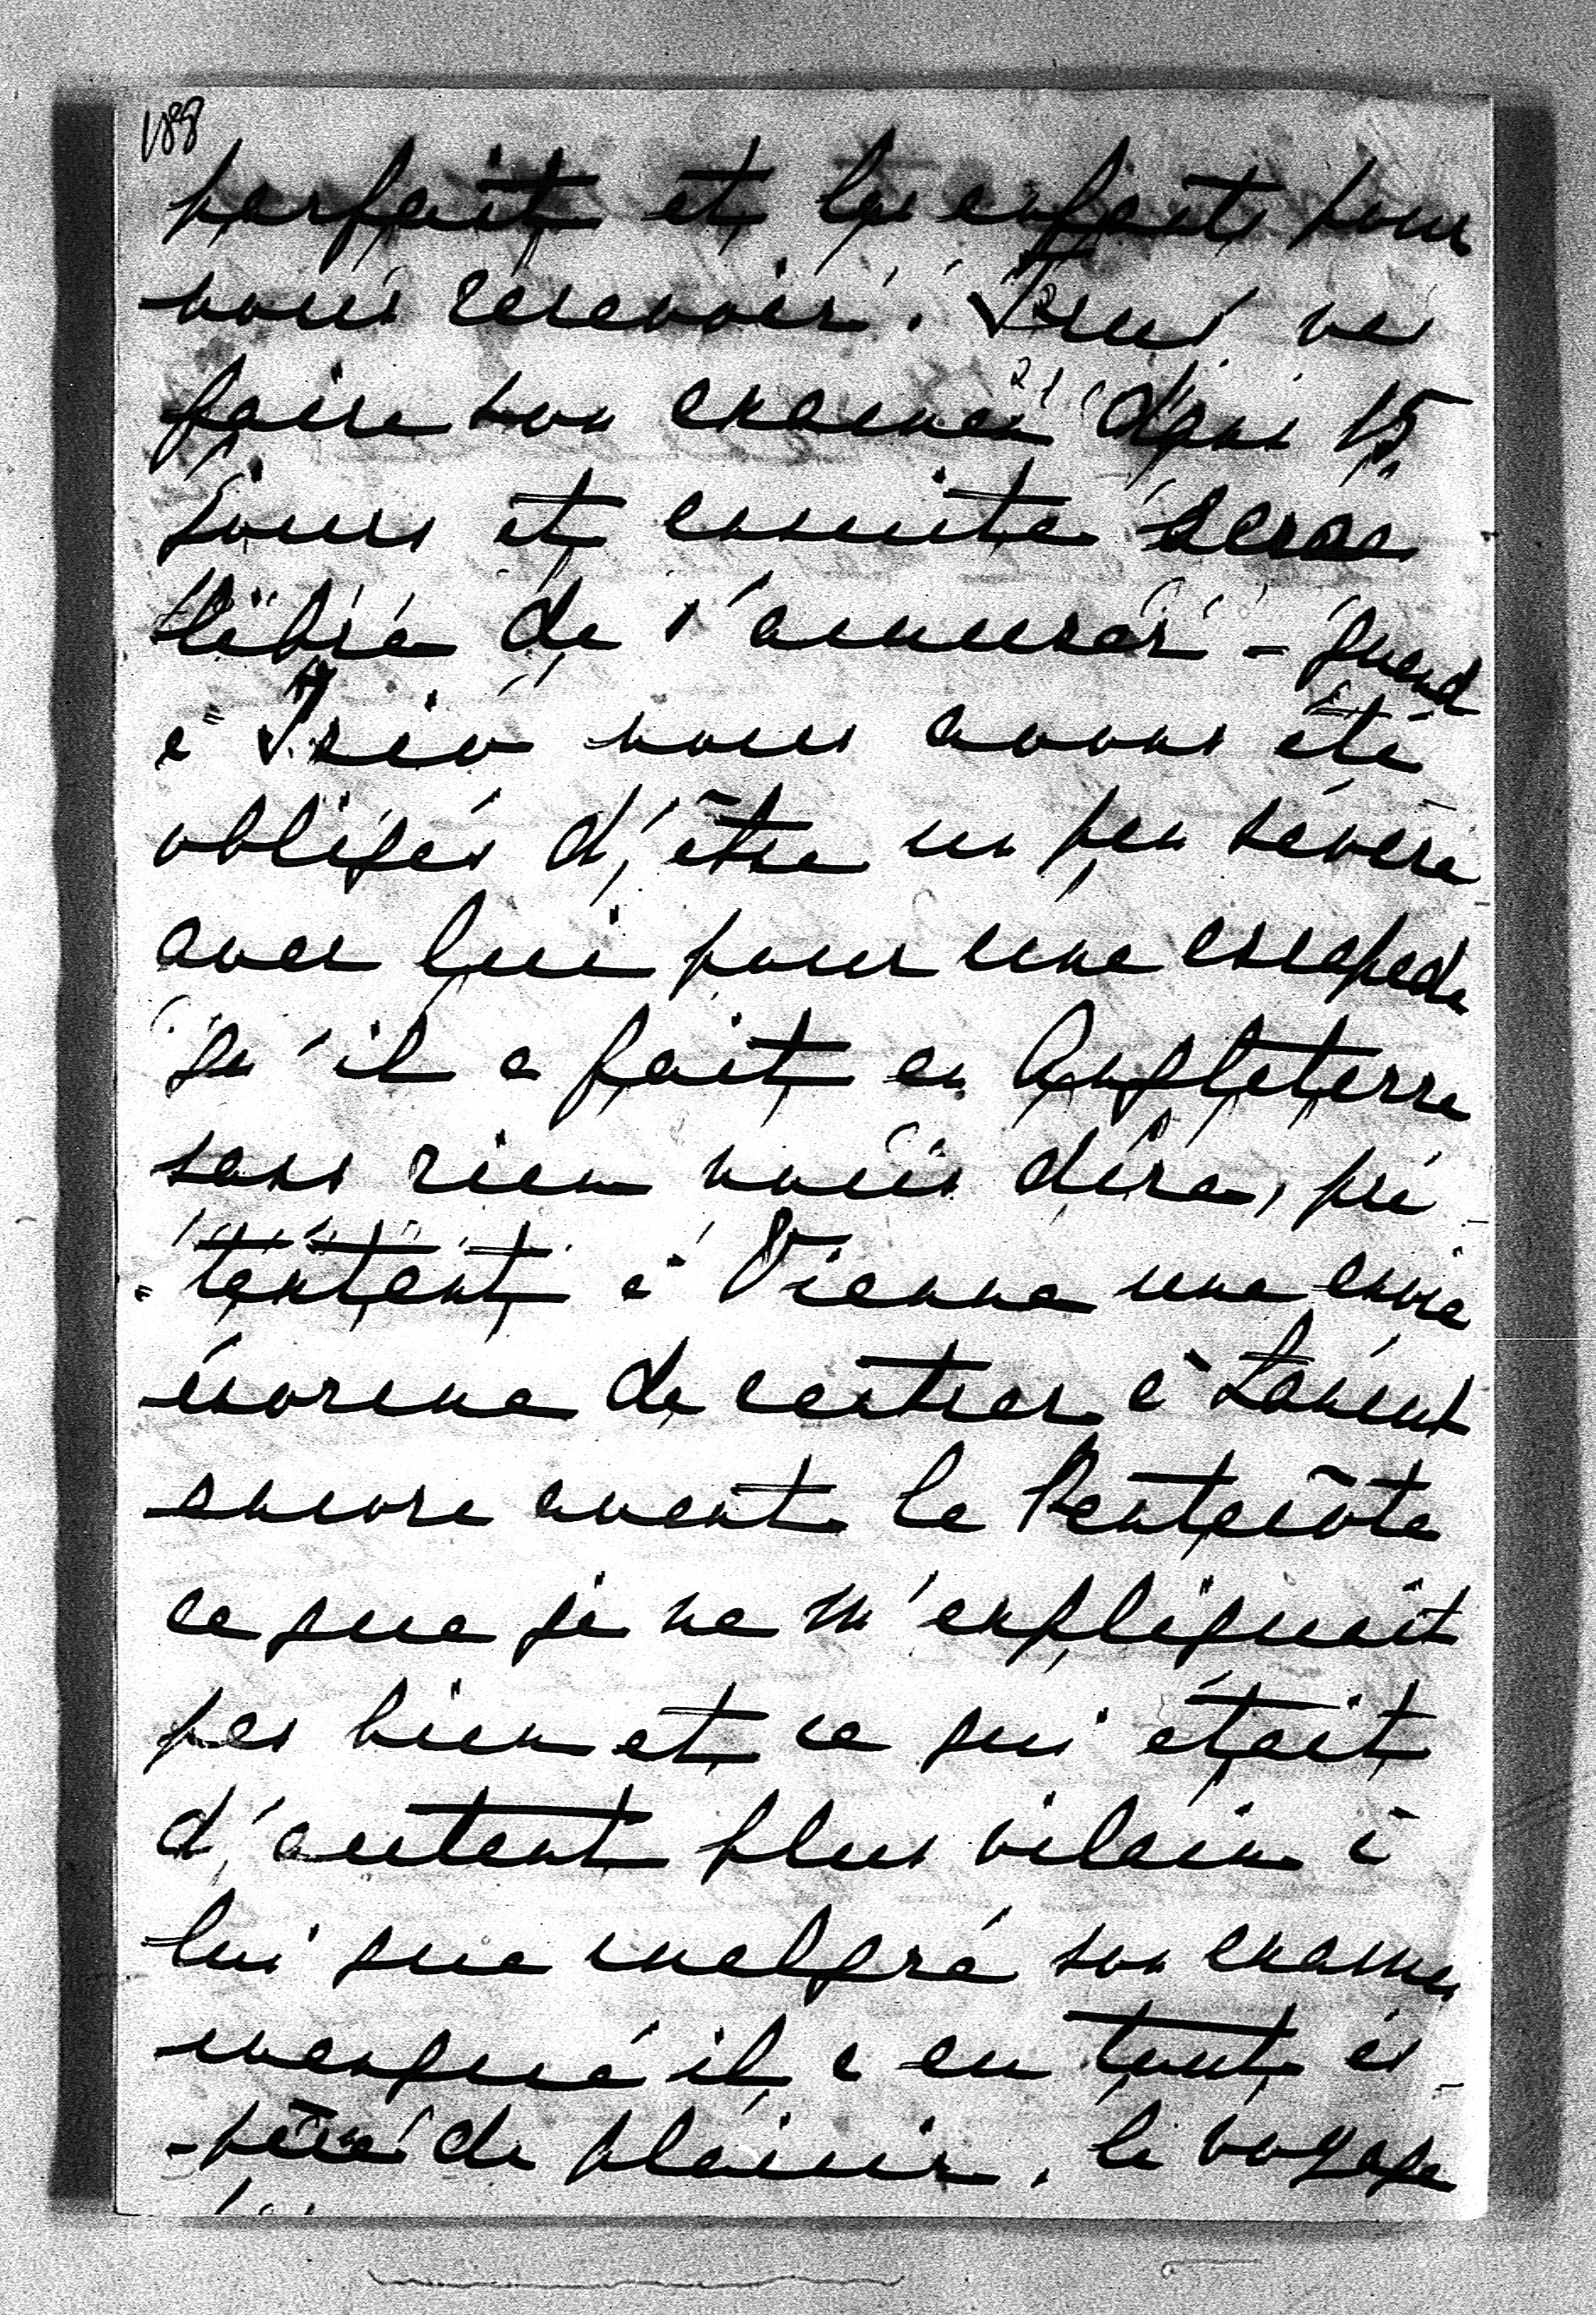 188
parfait et les enfants pour
nous recevoir. va
faire son examen dans 15
jours et ensuite sera
libre de s'amuser - quand
à nous avons été
obligés d'être un peu sévère
avec lui pour une escapade
qu'il a fait en Angleterre
sans rien nous dire, pré-
=textant à Vienne une envie
énorme de rentrer à
encore avant la Pentecôte
ce que je ne m'expliquait
pas bien et ce qui était
d'autant plus vilain à
lui que malgré son examen
manqué il a eu tout es-
-pèce de plaisir, le voyage